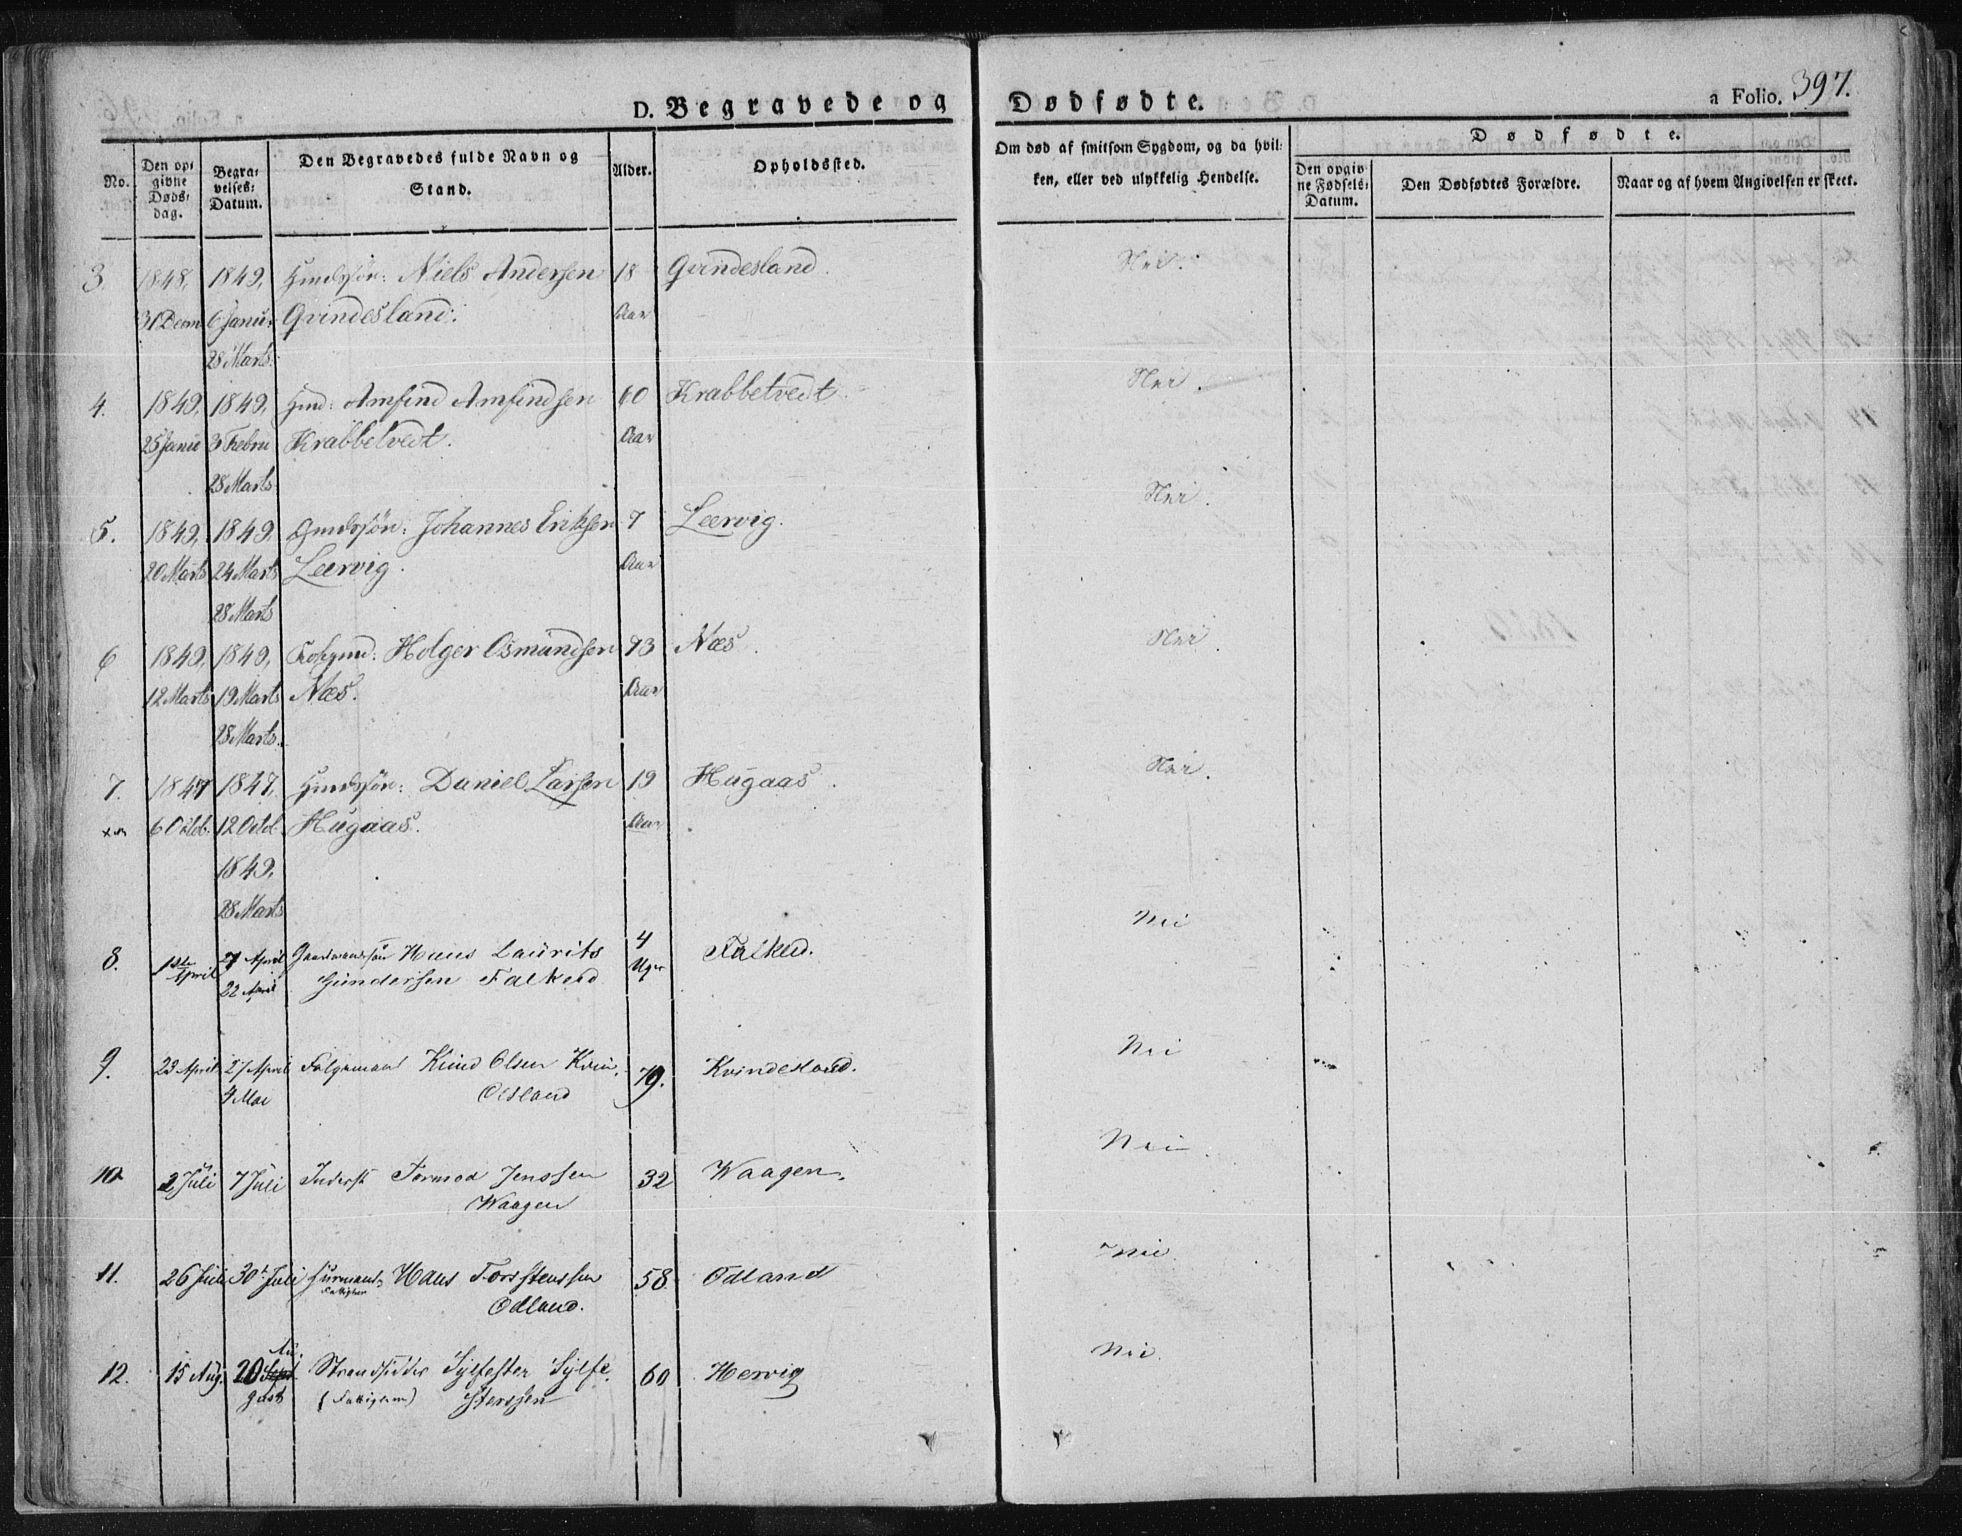 D. Begravede og Dødfødte. a Folio. 397.
No.
Den opgivne Dødsdag.
Begravelses-Datum.
Den Begravedes fulde Navn og Stand.
Alder.
Opholdssted.
Om død af smitsom Sygdom, og da hvilken, eller ved ulykkelig Hendelse.
Dødfødte.
Den opgivne Fødsels-Datum.
Den Dødfødtes Forældre.
Naar og af hvem Angivelsen er skeet.
3. 1848, 1849, Niels Andersen 18 Gvindesland. Nei.
31 Decm 6 Janu: Gvindesland. Aar
28 Marts.
4. 1849, 1849, Amfind Amfindsen 60 Krabbetvedt. Nei.
25 Janu 3 Febru Krabbetvedt. Aar
28 Marts
5. 1849, 1849, Johannes Eriksen 7 Leervig. Nei.
20 Marts 24 Marts Leervig. Aar
28 Marts
6 1849, 1849, Holger Osmundsen 73 Næs. Nei.
12 Marts 19 Marts Næs. Aar
28 Marts.
7. 1847 1847, Daniel Larsen 19 Hugaas. Nei.
6 Octob. 12 Octob. Hugaas. Aar
1849,
28 Marts
8. 1ste April 7 April Gaardmandssøn Hans Laurits 4 Uger Falked. Nei
22 April Gundersen Falked
9. 23 April 27 April Knud Olsen Kvin- 79. Kvindesland. Nei
4 Mai desland
10. 2 Juli 7 Juli Inderst Tormod Jenssen 32 Waagen. Nei.
Waagen
11. 26 Juli 30t Juli Huusmand Hans Torsstenssen 58. Odland Nei
Fattiglem Odland.
12. 15 Aug. 20 Au- Strandsidder Sylfester Sylfe- 60 Hervig Nei.
gust (Fattiglem) sterssen